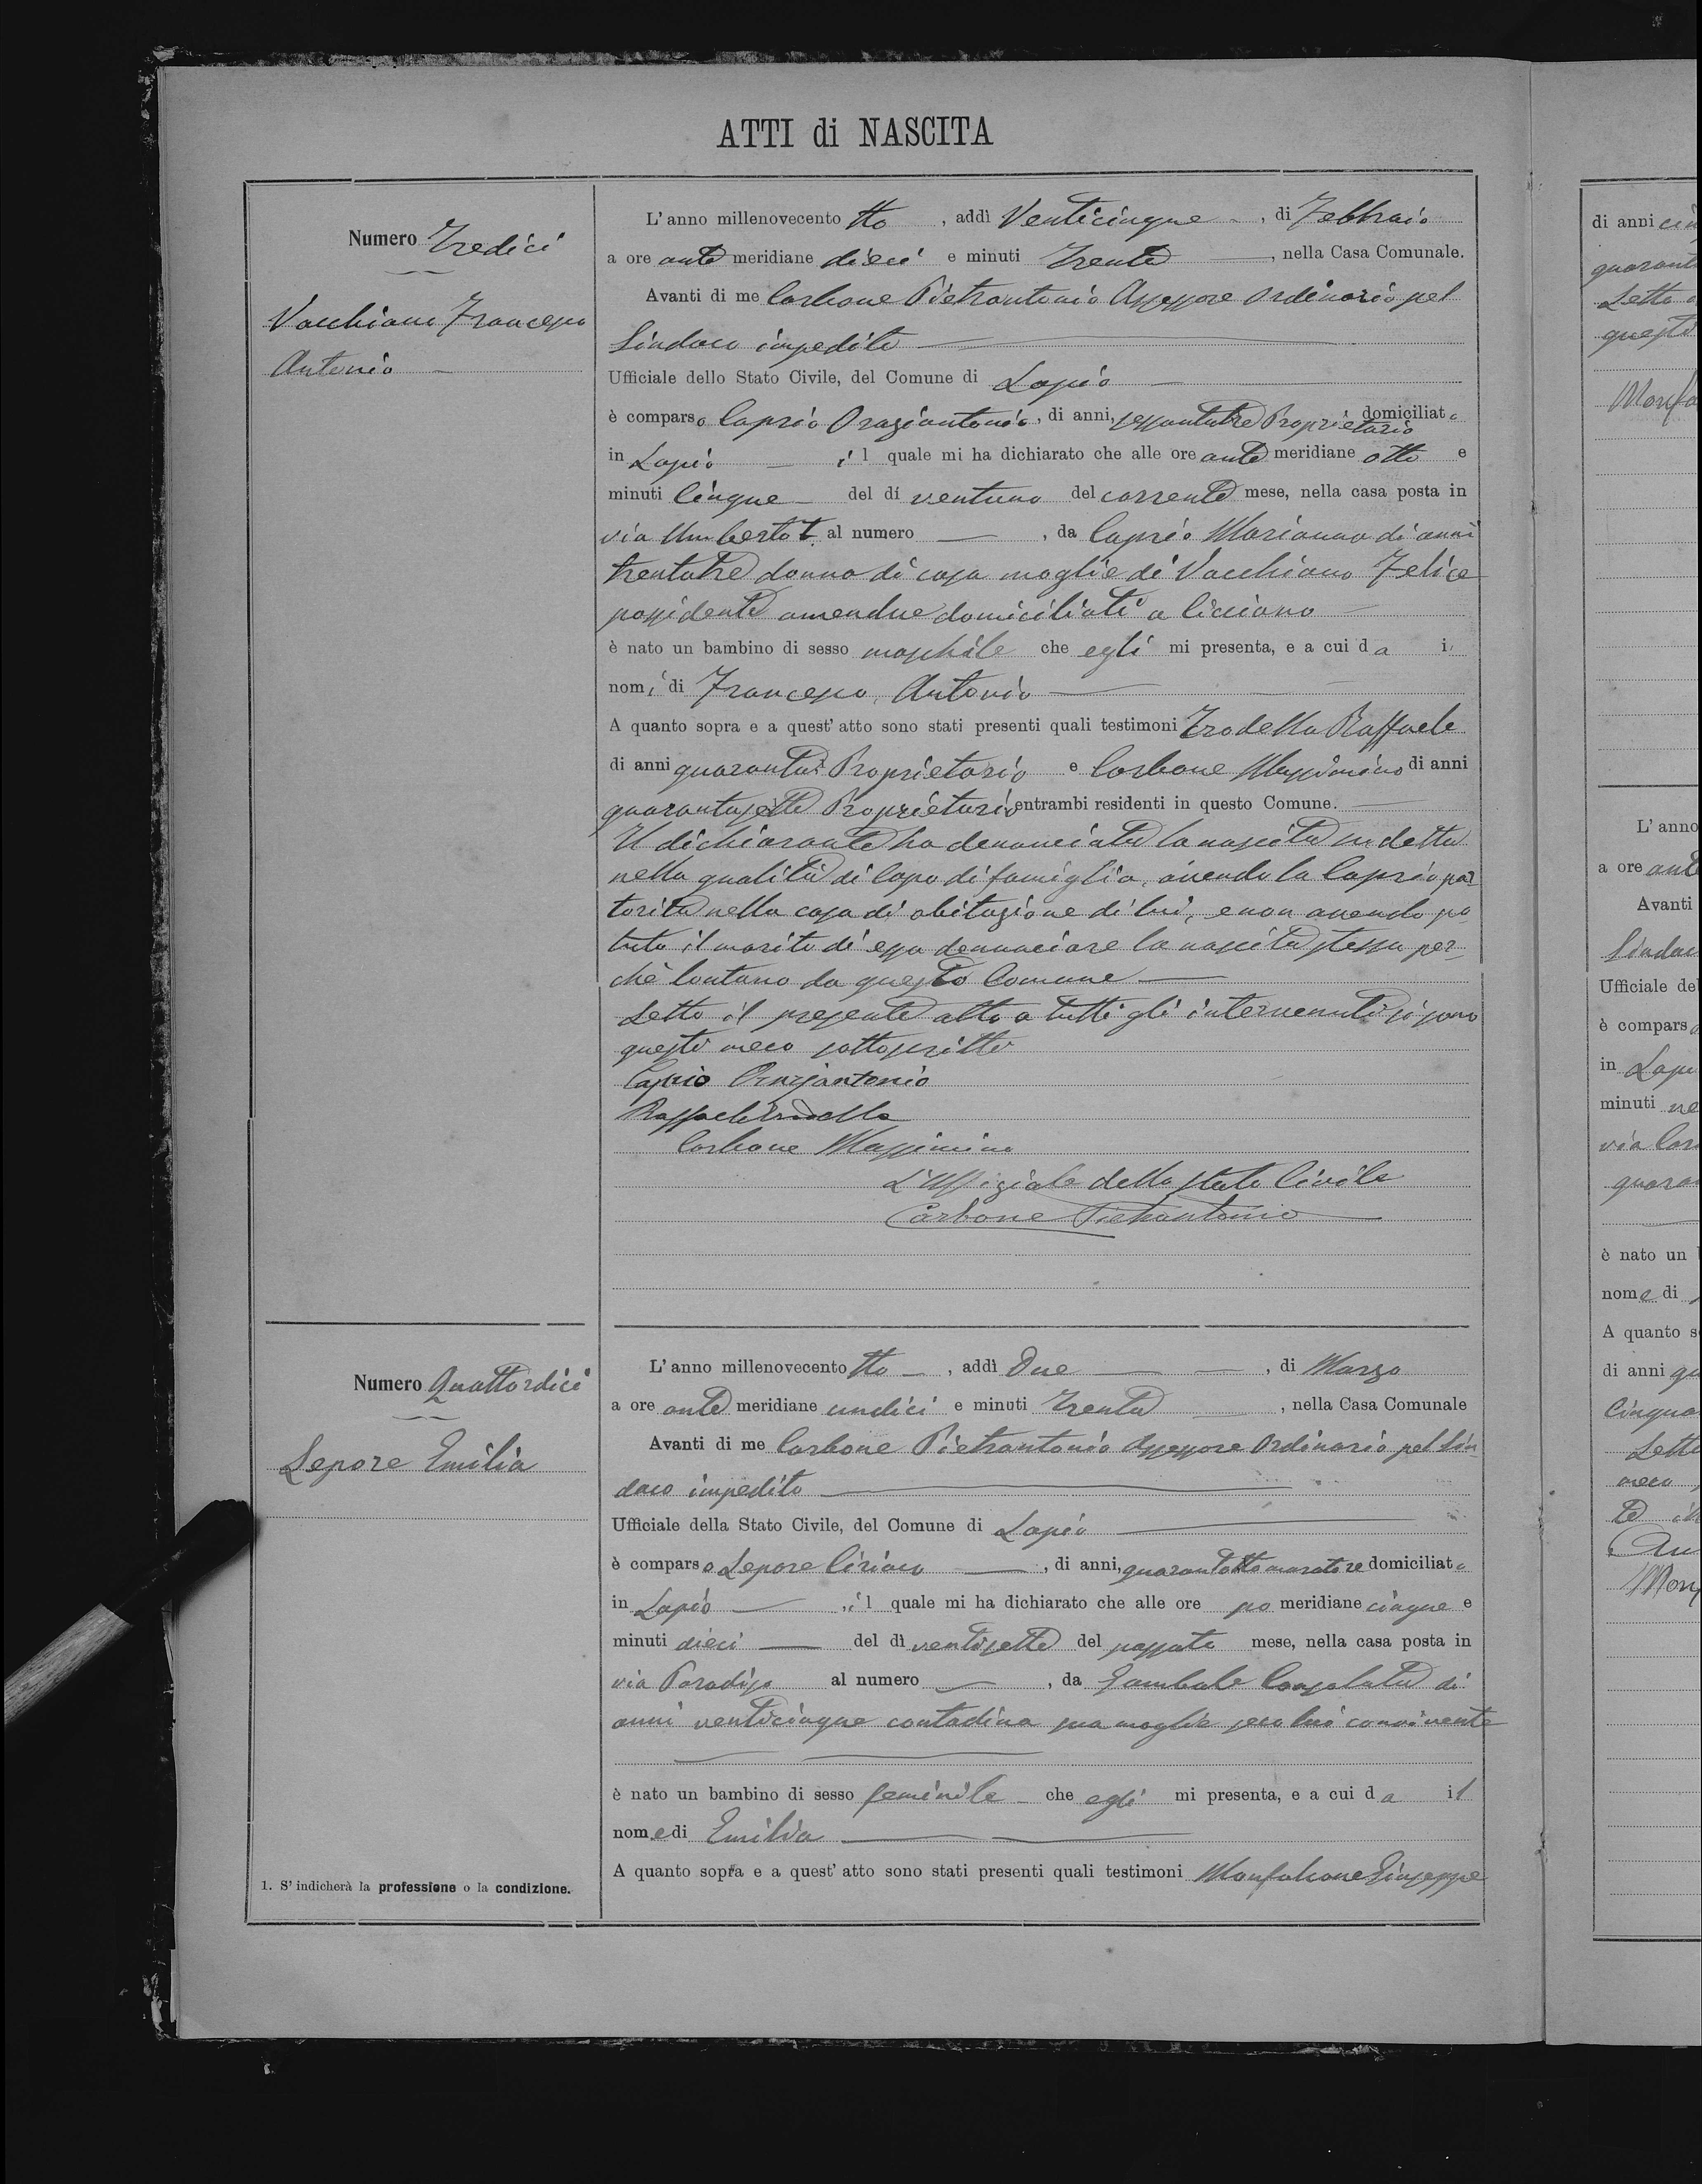 ATTI di NASCITA
Numero Tredici
Vacchiano Francesco
Antonio
L'anno millenovecento tto, addì Venticinque, di Febbraio
a ore ante meridiane dieci e minuti Trenta, nella Casa Comunale.
Avanti di me Carbone Pietrantonio Assessore Ordinario pel
Sindaco impedito
Ufficiale dello Stato Civile, del Comune di Lapio
è comparso Caprio Oraziantonio, di anni, sessantatre Proprietario domiciliato
in Lapio il quale mi ha dichiarato che alle ore ante meridiane otto e
minuti Cinque del dì ventuno del corrente mese, nella casa posta in
via Umberto I. al numero , da Caprio Marianna di anni
trentatre donna di casa moglie di Vacchiano Felice
possidente amendue domiciliati a Cicciano
è nato un bambino di sesso maschile che egli mi presenta, e a cui da i
nomi di Francesco, Antonio
A quanto sopra e a quest' atto sono stati presenti quali testimoni Trodella Raffaele
di anni Proprietario e Carbone Massimino di anni
quarantasette Proprietario entrambi residenti in questo Comune.
Il dichiarante ha denunciata la nascita sudetta
nella qualità di Capo di famiglia, avendo la Caprio par
torito nella casa di abitazione di lui, e non avendo po
tuto il marito di essa denunciare la nascita stessa per
chè lontano da questo Comune
Letto il presente atto a tutti gli intervenuti si sono
questi meco sottoscritti
Caprio Oraziantonio
Raffaele Trodella
Carbone Massimino
L'Uffiziale dello Stato Civile
Carbone Pietrantonio
Numero Quattordici
Lepore Emilia
L'anno millenovecento tto, addì Due, di Marzo
a ore ante meridiane undici e minuti Trenta, nella Casa Comunale
Avanti di me Carbone Pietrantonio Assessore Ordinario pel Sin
daco impedito
Ufficiale della Stato Civile, del Comune di Lapio
è comparso Lepore Ciriaco, di anni, quarantotto muratore domiciliato
in Lapio, il quale mi ha dichiarato che alle ore po meridiane cinque e
minuti dieci del dì ventisette del passato mese, nella casa posta in
via Paradiso al numero , da Gambale Consolata di
anni venticinque contadina sua moglie seco lui convivente
è nato un bambino di sesso feminile che egli mi presenta, e a cui da il
nome di Emilia
A quanto sopra e a quest' atto sono stati presenti quali testimoni Monfalcone Giuseppe
1. S' indicherà la professione o la condizione.
di anni
quarant
Letto
questi
Monfa
L' anno
a ore ante
Avanti
Sindac
Ufficiale de
è compars
in Lapi
minuti
via
quara
è nato un
nome di
A quanto s
di anni qu
Cinqua
Lett
meco